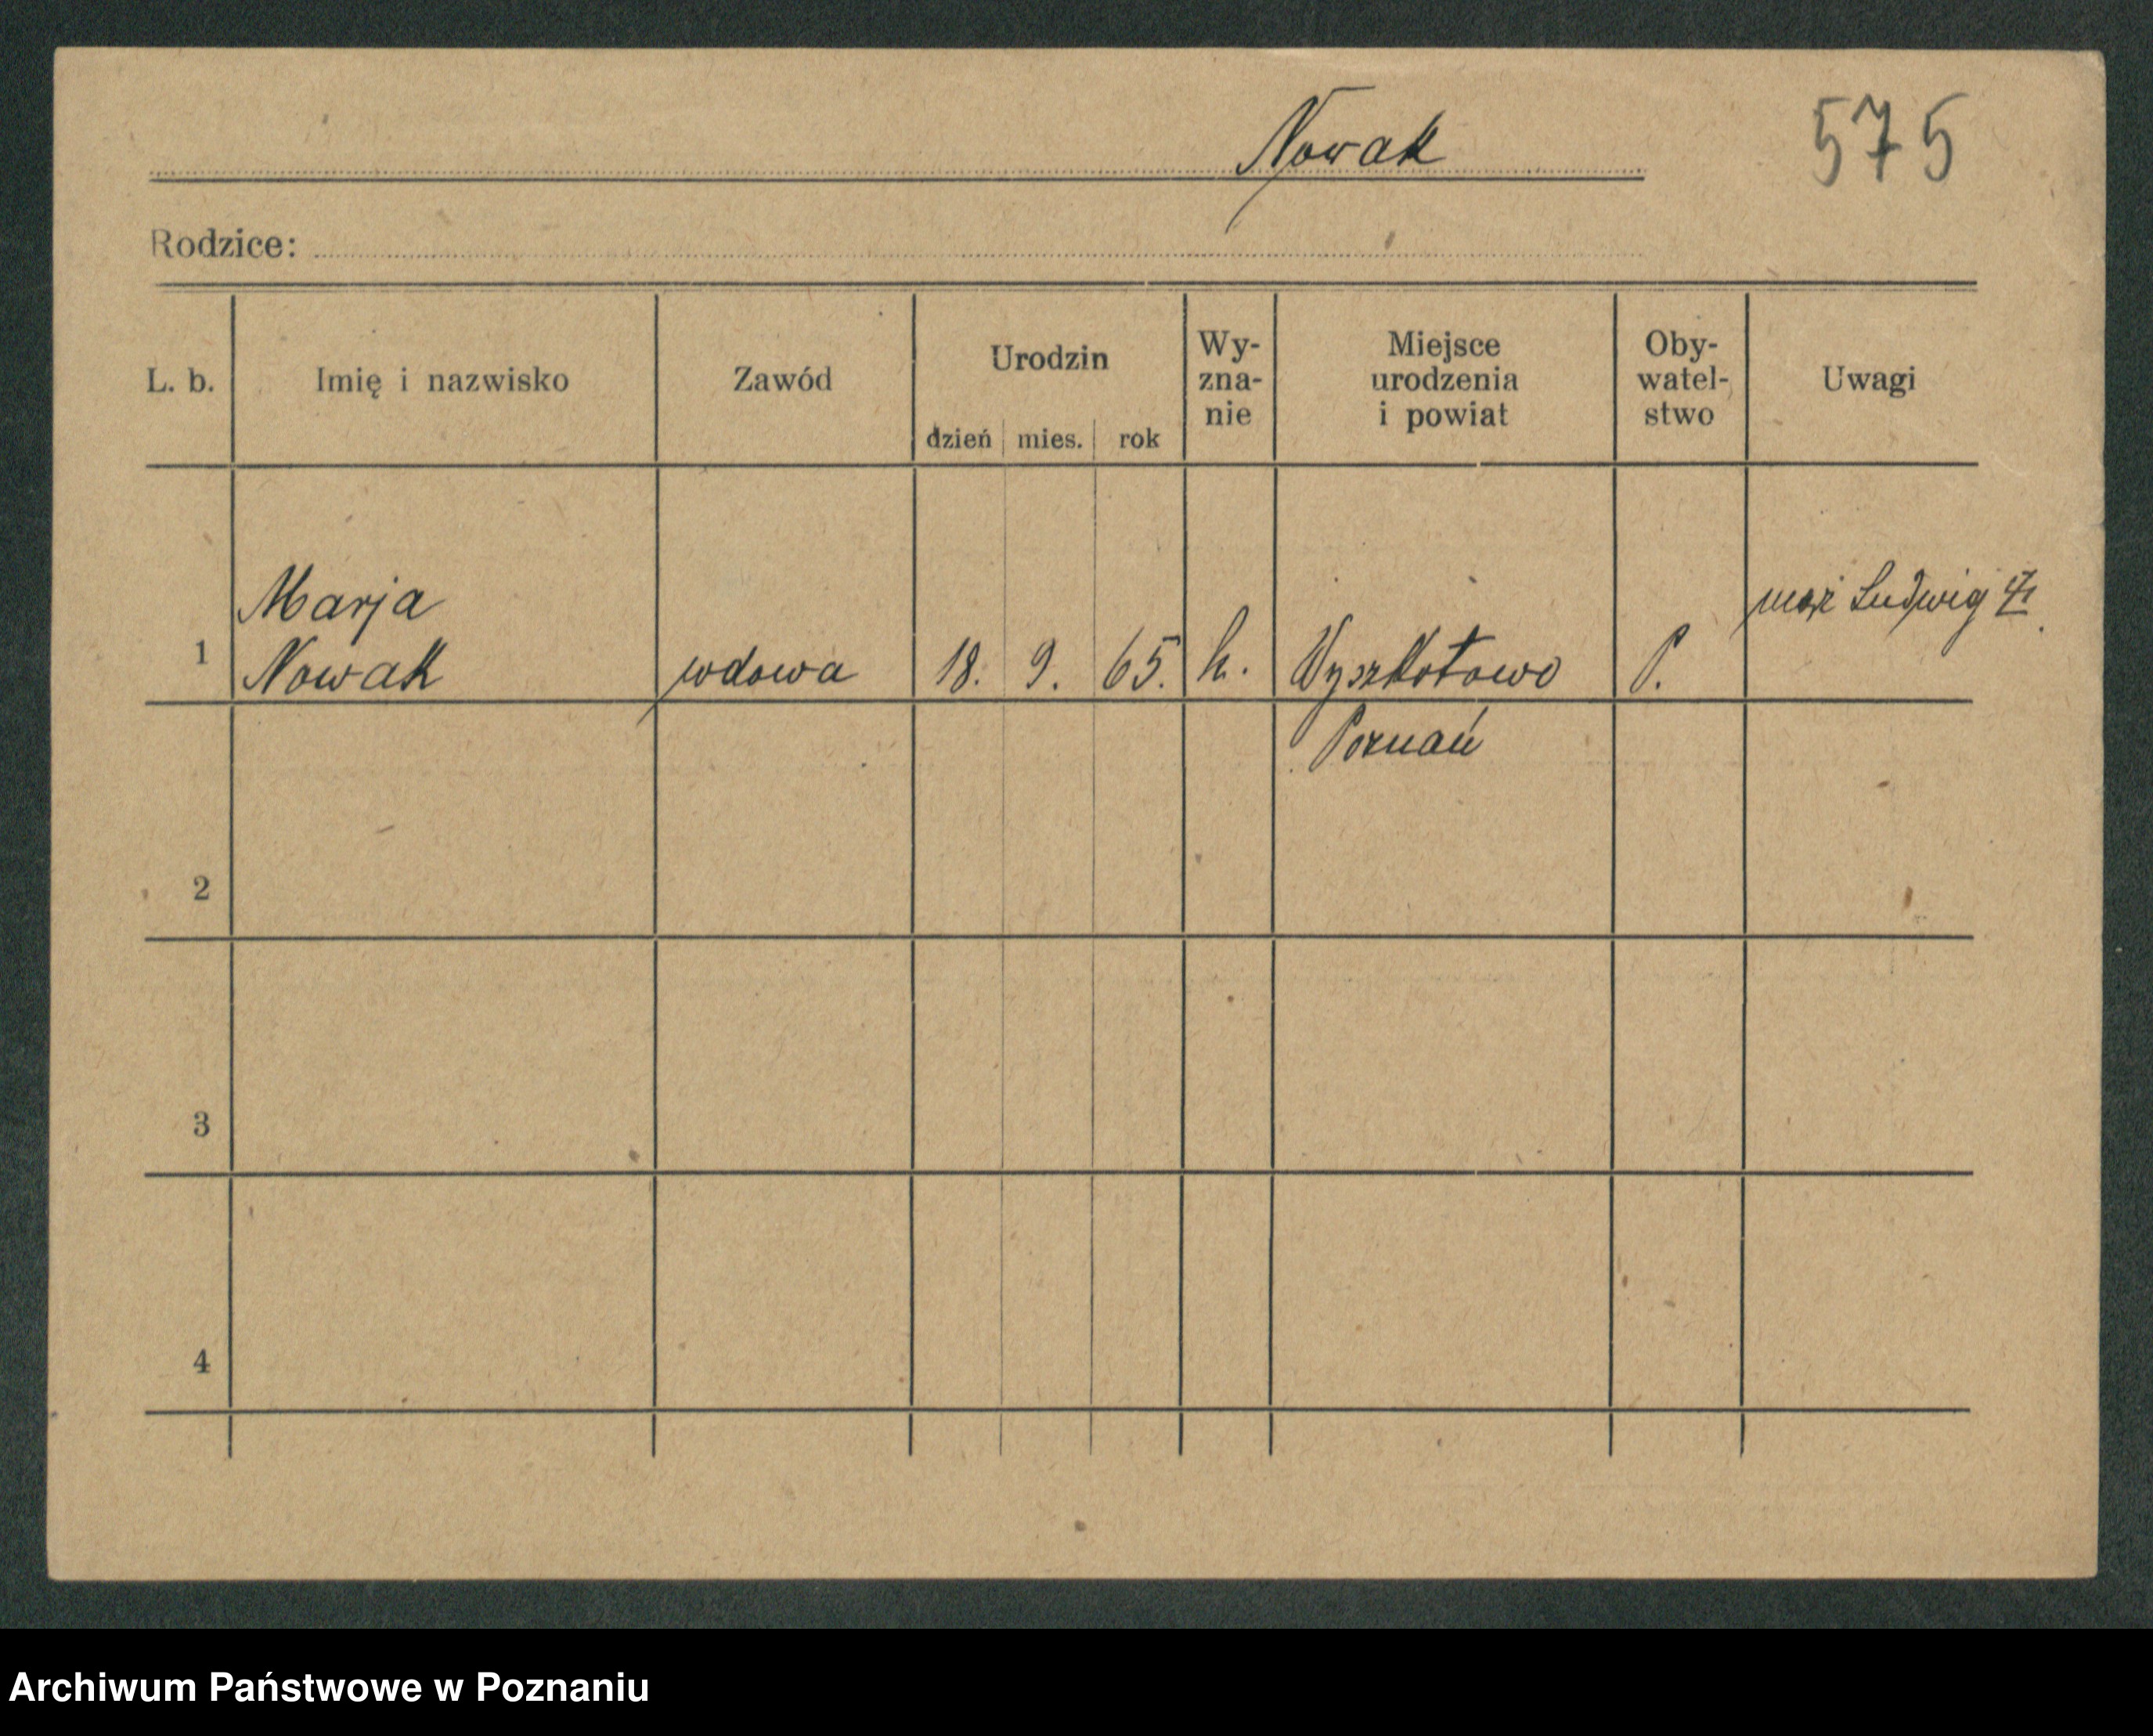 Nowak
575
Rodzice:
L. b.
Imię i nazwisko
Zawód
Urodzin
dzień mies. rok
Wy-
zna-
nie
Miejsce
urodzenia
i powiat
Oby-
watel-
stwo
Uwagi
1
Marja
Nowak
wdowa
18. 9. 65.
k.
Wyszkotowo
Poznań
P.
mąż Ludwig
2
3
4
Archiwum Państwowe w Poznaniu